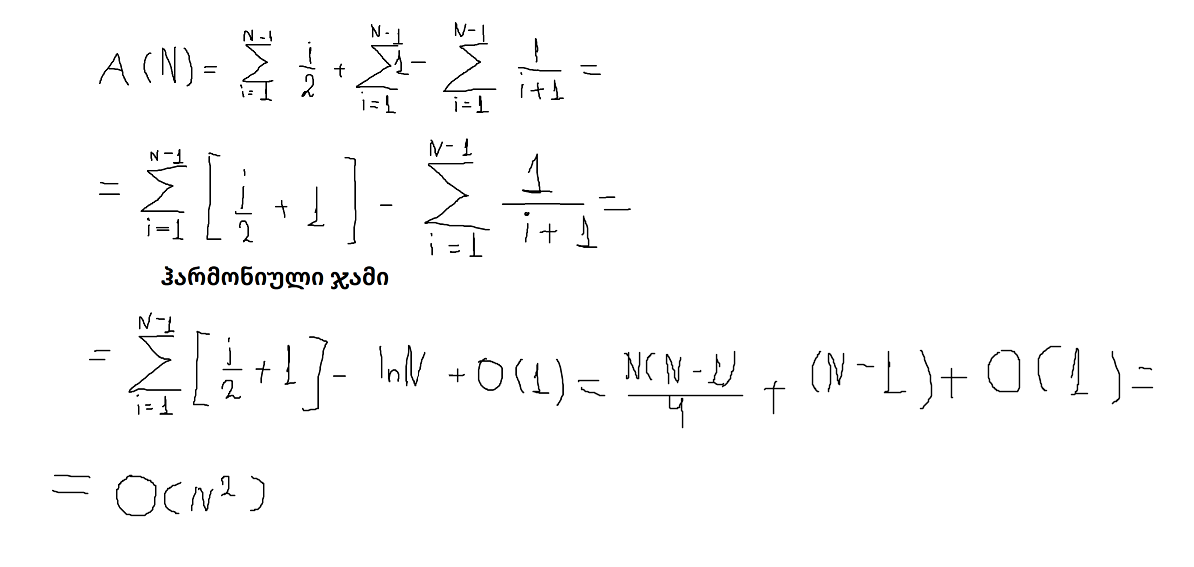 A(N) = \sum_{i=1}^{N-1} \frac{i}{2} + \sum_{i=1}^{N-1} 1 - \sum_{i=1}^{N-1} \frac{1}{i+1} =
= \sum_{i=1}^{N-1} [\frac{i}{2} + 1] - \sum_{i=1}^{N-1} \frac{1}{i+1} =
ჰარმონიული ჯამი
= \sum_{i=1}^{N-1} [\frac{i}{2} + 1] - lnN + O(1) = \frac{N(N-1)}{4} + (N-1) + O(1) =
= O(N^2)